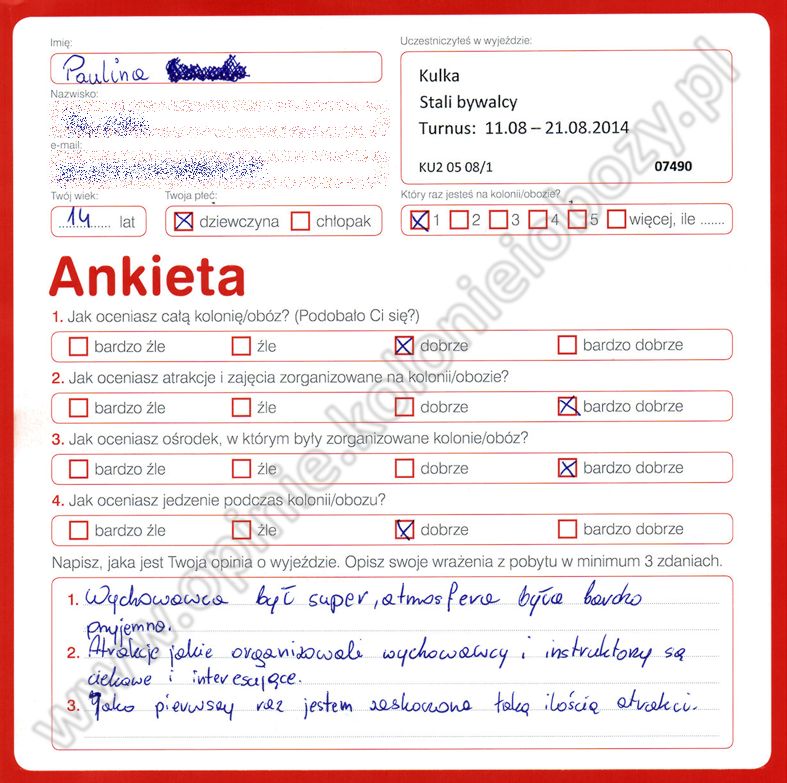 Imię:
Paulina
Nazwisko:
e-mail:
Twój wiek:
14 lat
Twoja płeć:
dziewczyna chłopak
Uczestniczyłeś w wyjeździe:
Kulka
Stali bywalcy
Turnus: 11.08 – 21.08.2014
KU2 05 08/1 07490
Który raz jesteś na kolonii/obozie?
1 2 3 4 5 więcej, ile .......
Ankieta
1. Jak oceniasz całą kolonię/obóz? (Podobało Ci się?)
bardzo źle źle dobrze bardzo dobrze
2. Jak oceniasz atrakcje i zajęcia zorganizowane na kolonii/obozie?
bardzo źle źle dobrze bardzo dobrze
3. Jak oceniasz ośrodek, w którym były zorganizowane kolonie/obóz?
bardzo źle źle dobrze bardzo dobrze
4. Jak oceniasz jedzenie podczas kolonii/obozu?
bardzo źle źle dobrze bardzo dobrze
Napisz, jaka jest Twoja opinia o wyjeździe. Opisz swoje wrażenia z pobytu w minimum 3 zdaniach.
1. Wychowawca był super, atmosfera była bardzo
przyjemna.
2. Atrakcje jakie organizowali wychowawcy i instruktorzy są
ciekawe i interesujące.
3. Jako pierwszy raz jestem zaskoczona taką ilością atrakcji.
www.opinie.kolonieiobozy.pl